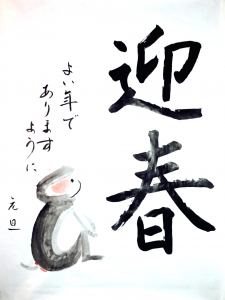 迎春
よい年で
あります
ように
元旦